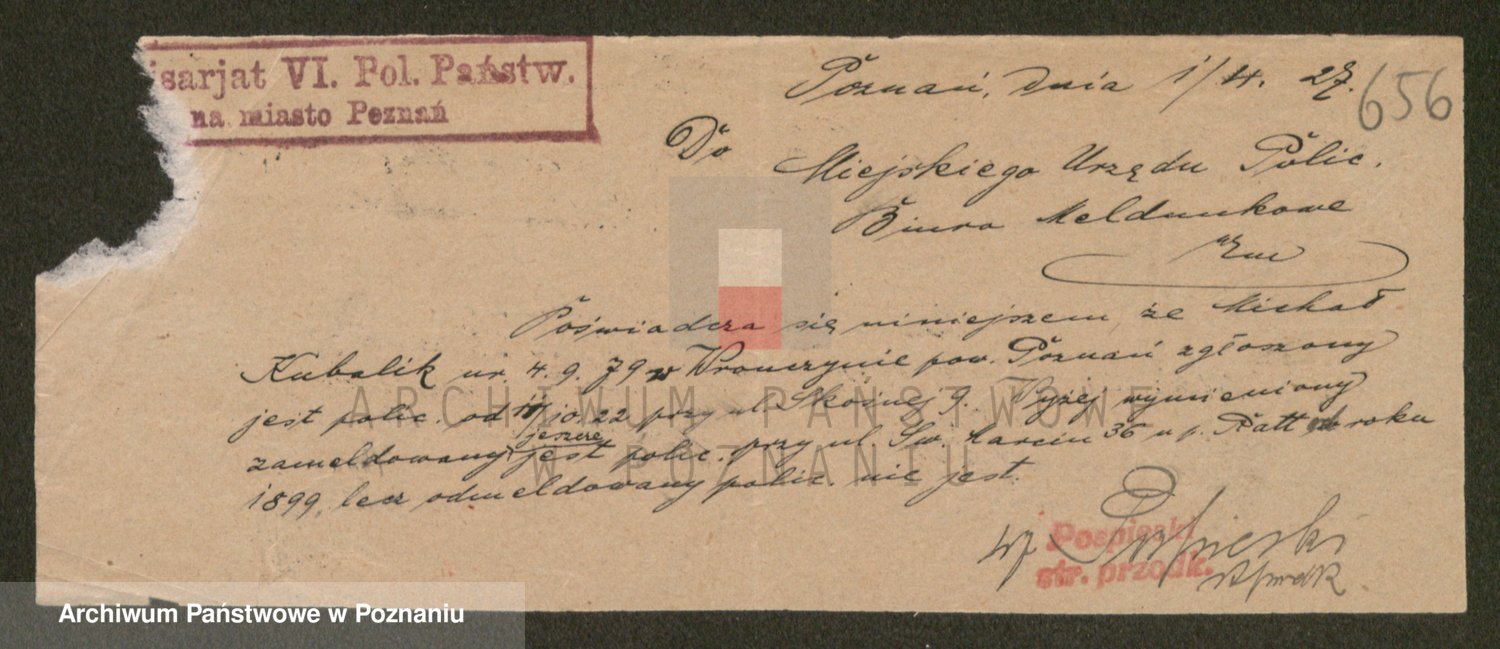 isarjat VI. Pol. Państw.
na miasto Poznań
Poznań, dnia 1/4. 27.
656
Do
Miejskiego Urzędu Polic.
Biuro Meldunkowe
Poświadcza się niniejszem, że Michał
Kubalik ur. 4. 9. 79 w Wronczynie pow. Poznań zgłoszony
jest polic. od 10/10 22 przy ul. Skośnej 9. Wyżej wymieniony
zameldowany jeszcze jest polic. przy ul. Św. Marcin 36 u p. Ratt od roku
1899, lecz odmeldowany polic. nie jest.
Pospieski
Pospieski
str. przodk.
st. przodk
ARCHIWUM PAŃSTWOWE
W POZNANIU
Archiwum Państwowe w Poznaniu